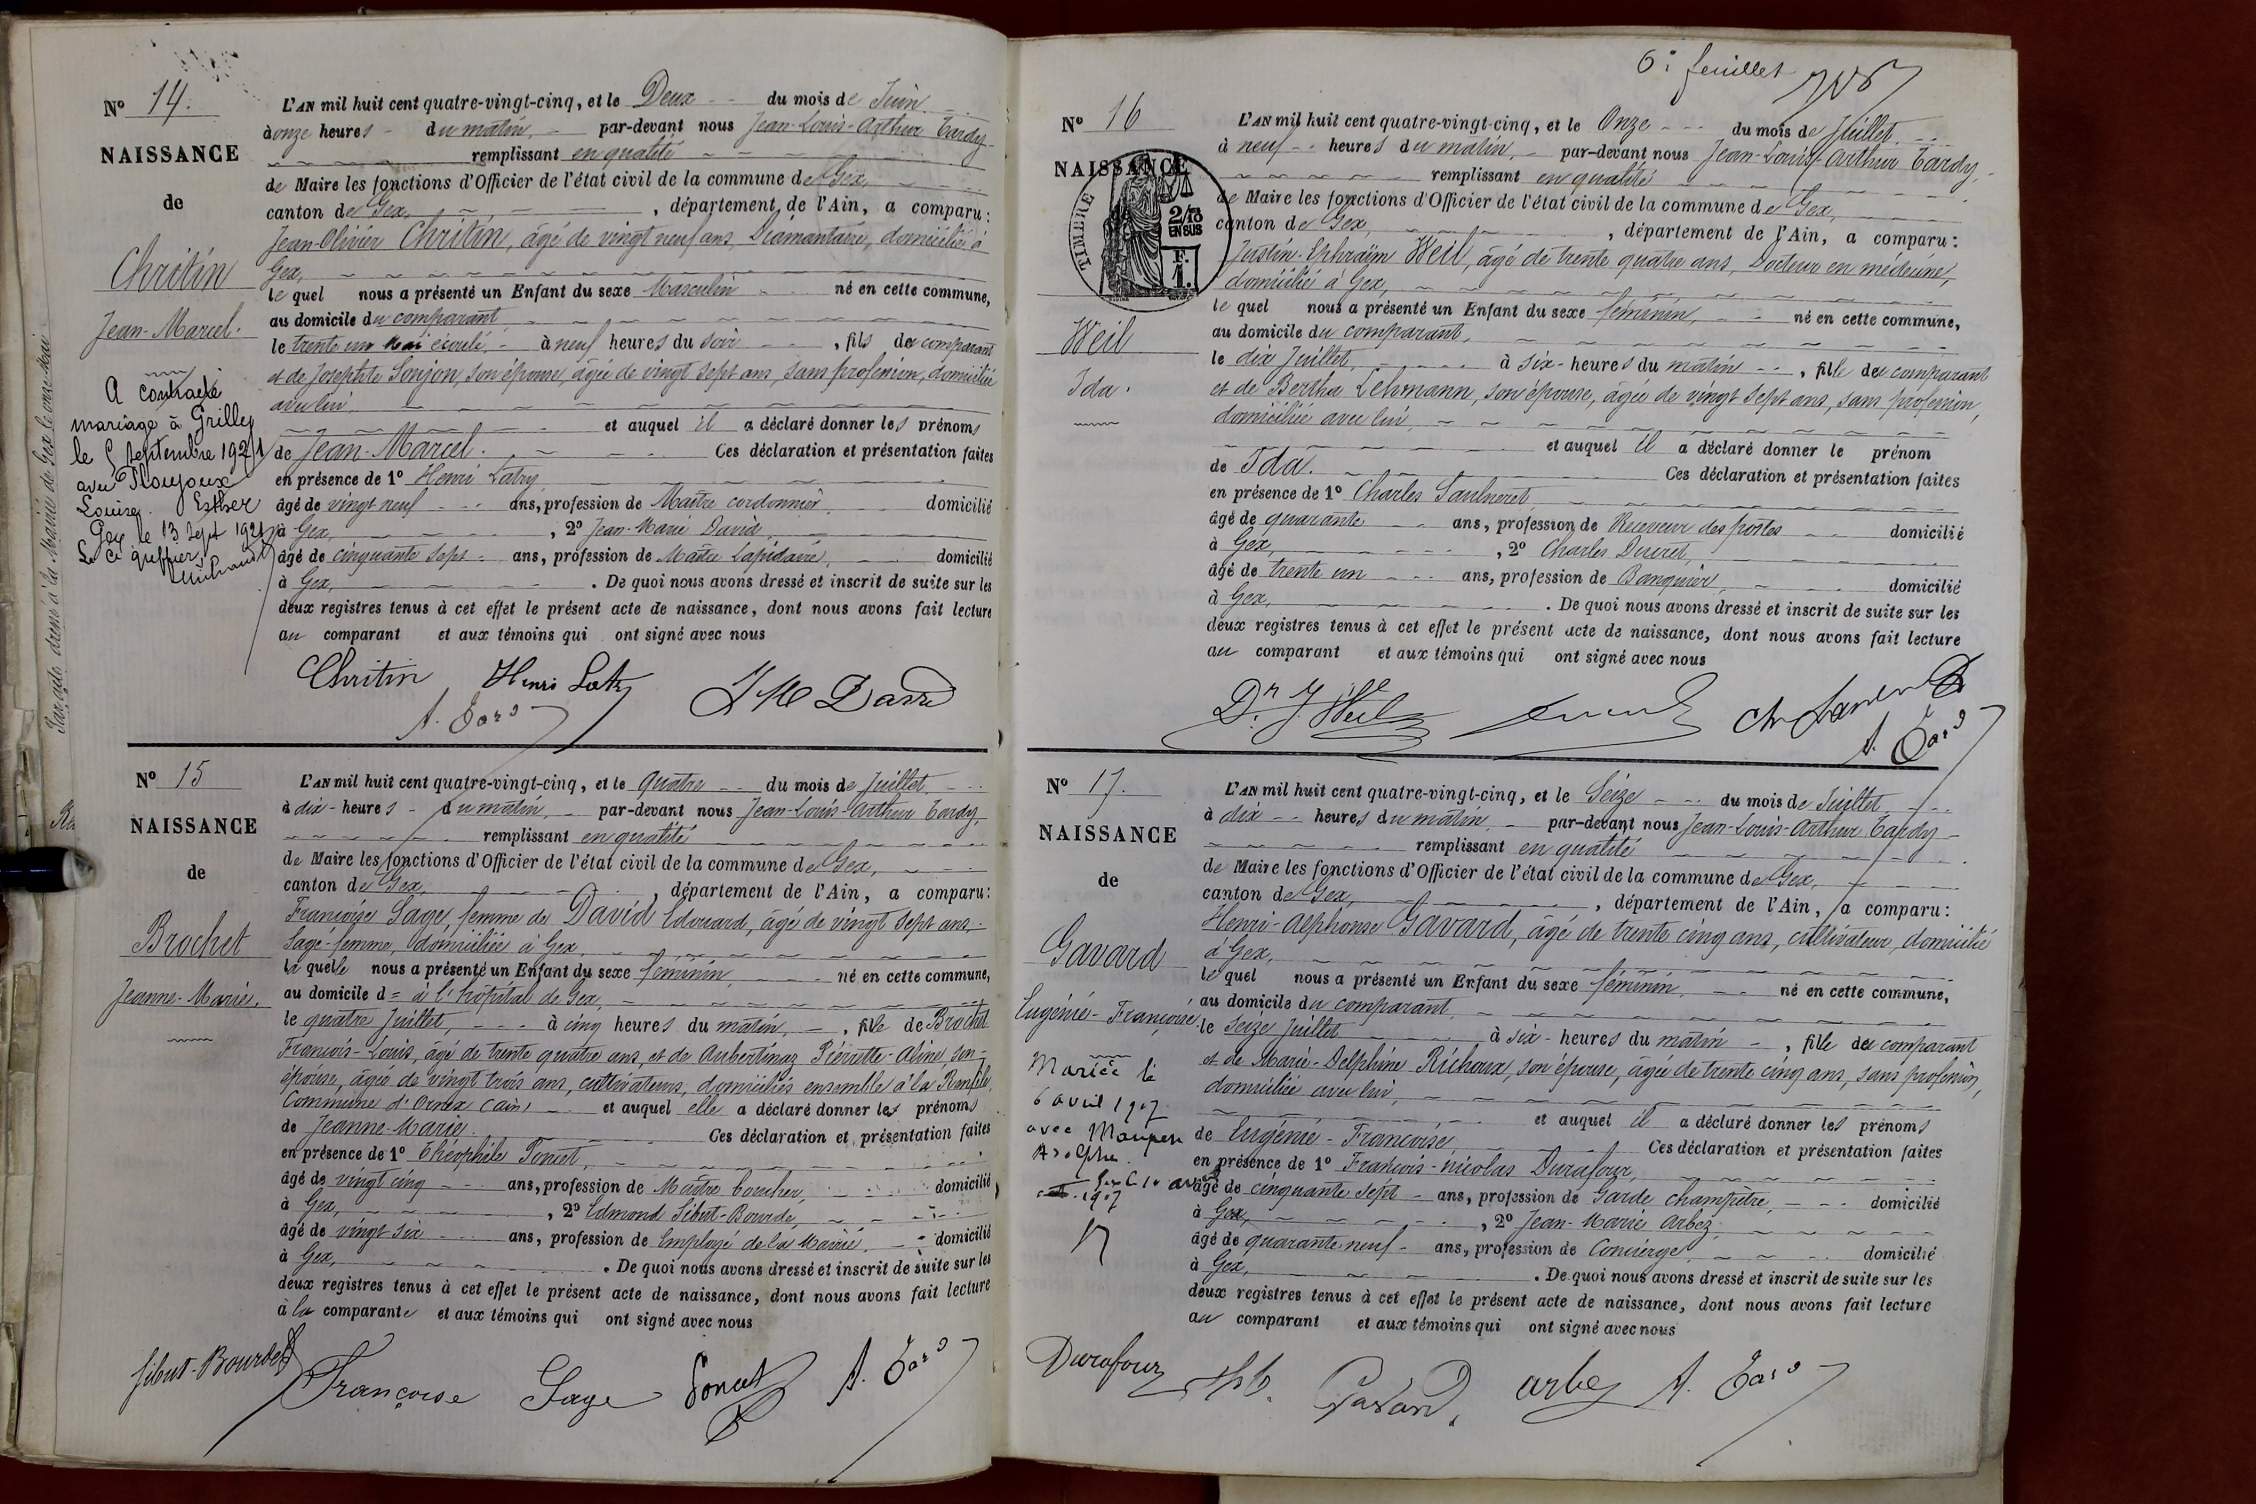 Nº 14.
NAISSANCE
de
Chritin
Jean-Marcel.
A contracté
mariage à Grilly
le 5 Septembre 1921
avec
Louise Esther
Gex le 13 Sept 1921
Le Cis greffier
L'AN mil huit cent quatre-vingt-cinq, et le Deux du mois de Juin
à onze heures du matin, par-devant nous Jean-Louis-Arthur Tardy
remplissant en qualité
de Maire les fonctions d'Officier de l'état civil de la commune de Gex,
canton de Gex, , département de l'Ain, a comparu:
Jean-Olivier Chritin, âgé de vingt neuf ans, Diamantaire, domicilié à
Gex,
le quel nous a présenté un Enfant du sexe Masculin né en cette commune,
au domicile du comparant
le trente un Mai écoulé, à neuf heures du soir , fils du comparant
et de Josephte Sonjon, son épouse, âgée de vingt sept ans, sans profession, domiciliée
avec lui,
et auquel il a déclaré donner les prénoms
de Jean-Marcel. Ces déclaration et présentation faites
en présence de 1º Henri Latry
âgé de vingt neuf ans, profession de Maître cordonnier, domicilié
à Gex, , 2º Jean-Marie David,
âgé de cinquante sept ans, profession de Maître Lapidaire, domicilié
à Gex, . De quoi nous avons dressé et inscrit de suite sur les
deux registres tenus à cet effet le présent acte de naissance, dont nous avons fait lecture
au comparant et aux témoins qui ont signé avec nous
Chritin Henri Latry J M David
A. Tardy
Nº 15
NAISSANCE
de
Brochet
Jeanne-Marie.
L'AN mil huit cent quatre-vingt-cinq, et le quatre du mois de Juillet
à dix heures du matin, par-devant nous Jean-Louis-Arthur Tardy,
remplissant en qualité
de Maire les fonctions d'Officier de l'état civil de la commune de Gex,
canton de Gex, , département de l'Ain, a comparu:
Françoise Sage, femme de David Edouard, âgé de vingt sept ans,
Sage-femme, domiciliée à Gex
la quelle nous a présenté un Enfant du sexe féminin, né en cette commune,
au domicile d= à l'hôpital de Gex,
le quatre Juillet, à cinq heures du matin, , fille de Brochet
François-Louis, âgé de trente quatre ans, et de Aubertinaz Pierrette-Aline, son
épouse, âgée de vingt trois ans, cultivateurs, domiciliés ensemble à la
Commune d'Ornex (Ain) et auquel elle a déclaré donner les prénoms
de Jeanne-Marie. Ces déclaration et présentation faites
en présence de 1º Théophile Poncet,
âgé de vingt cinq ans, profession de Maître boucher, domicilié
à Gex, , 2º Edmond Sibut-Bourdé,
âgé de vingt six ans, profession de Employé de la Mairie, domicilié
à Gex, . De quoi nous avons dressé et inscrit de suite sur les
deux registres tenus à cet effet le présent acte de naissance, dont nous avons fait lecture
à la comparante et aux témoins qui ont signé avec nous
Sibut-Bourdé Françoise Sage Poncet A. Tardy
6e feuillet
Nº 16
NAISSANCE
TIMBRE
2/10 EN SUS
F. 1.
Weil
Ida.
L'AN mil huit cent quatre-vingt-cinq, et le Onze du mois de Juillet
à neuf heures du matin, par-devant nous Jean-Louis-Arthur Tardy
remplissant en qualité
de Maire les fonctions d'Officier de l'état civil de la commune de Gex,
canton de Gex, , département de l'Ain, a comparu:
Justin-Ephraïm Weil, âgé de trente quatre ans, Docteur en médecine,
domicilié à Gex,
le quel nous a présenté un Enfant du sexe féminin, né en cette commune,
au domicile du comparant,
le dix Juillet, à six heures du matin , fille du comparant
et de Bertha Lehmann, son épouse, âgée de vingt sept ans, sans profession,
domiciliée avec lui,
et auquel il a déclaré donner le prénom
de Ida. Ces déclaration et présentation faites
en présence de 1º Charles
âgé de quarante ans, profession de Receveur des postes domicilié
à Gex, , 2º Charles
âgé de trente un ans, profession de Banquier, domicilié
à Gex, . De quoi nous avons dressé et inscrit de suite sur les
deux registres tenus à cet effet le présent acte de naissance, dont nous avons fait lecture
au comparant et aux témoins qui ont signé avec nous
Dr J. Weil
A. Tardy
Nº 17.
NAISSANCE
de
Gavard
Eugénie-Françoise
Mariée le
6 avril 1907
avec
Adolphe.
Gex le 10 avril
1907
L'AN mil huit cent quatre-vingt-cinq, et le Seize du mois de Juillet
à dix heures du matin, par-devant nous Jean-Louis-Arthur Tardy
remplissant en qualité
de Maire les fonctions d'Officier de l'état civil de la commune de Gex,
canton de Gex, , département de l'Ain, a comparu:
Henri-Alphonse Gavard, âgé de trente cinq ans, cultivateur, domicilié
à Gex,
le quel nous a présenté un Enfant du sexe féminin, né en cette commune,
au domicile du comparant,
le seize Juillet à six heures du matin , fille du comparant
et de Marie-Delphine Richoux, son épouse, âgée de trente cinq ans, sans profession,
domiciliée avec lui,
et auquel il a déclaré donner les prénoms
de Eugénie-Françoise, Ces déclaration et présentation faites
en présence de 1º François-Nicolas Durafour,
âgé de cinquante sept ans, profession de Garde champêtre, domicilié
à Gex, , 2º Jean-Marie Arbez,
âgé de quarante neuf ans, profession de Concierge, domicilié
à Gex, . De quoi nous avons dressé et inscrit de suite sur les
deux registres tenus à cet effet le présent acte de naissance, dont nous avons fait lecture
au comparant et aux témoins qui ont signé avec nous
Durafour Gavard Arbez A. Tardy